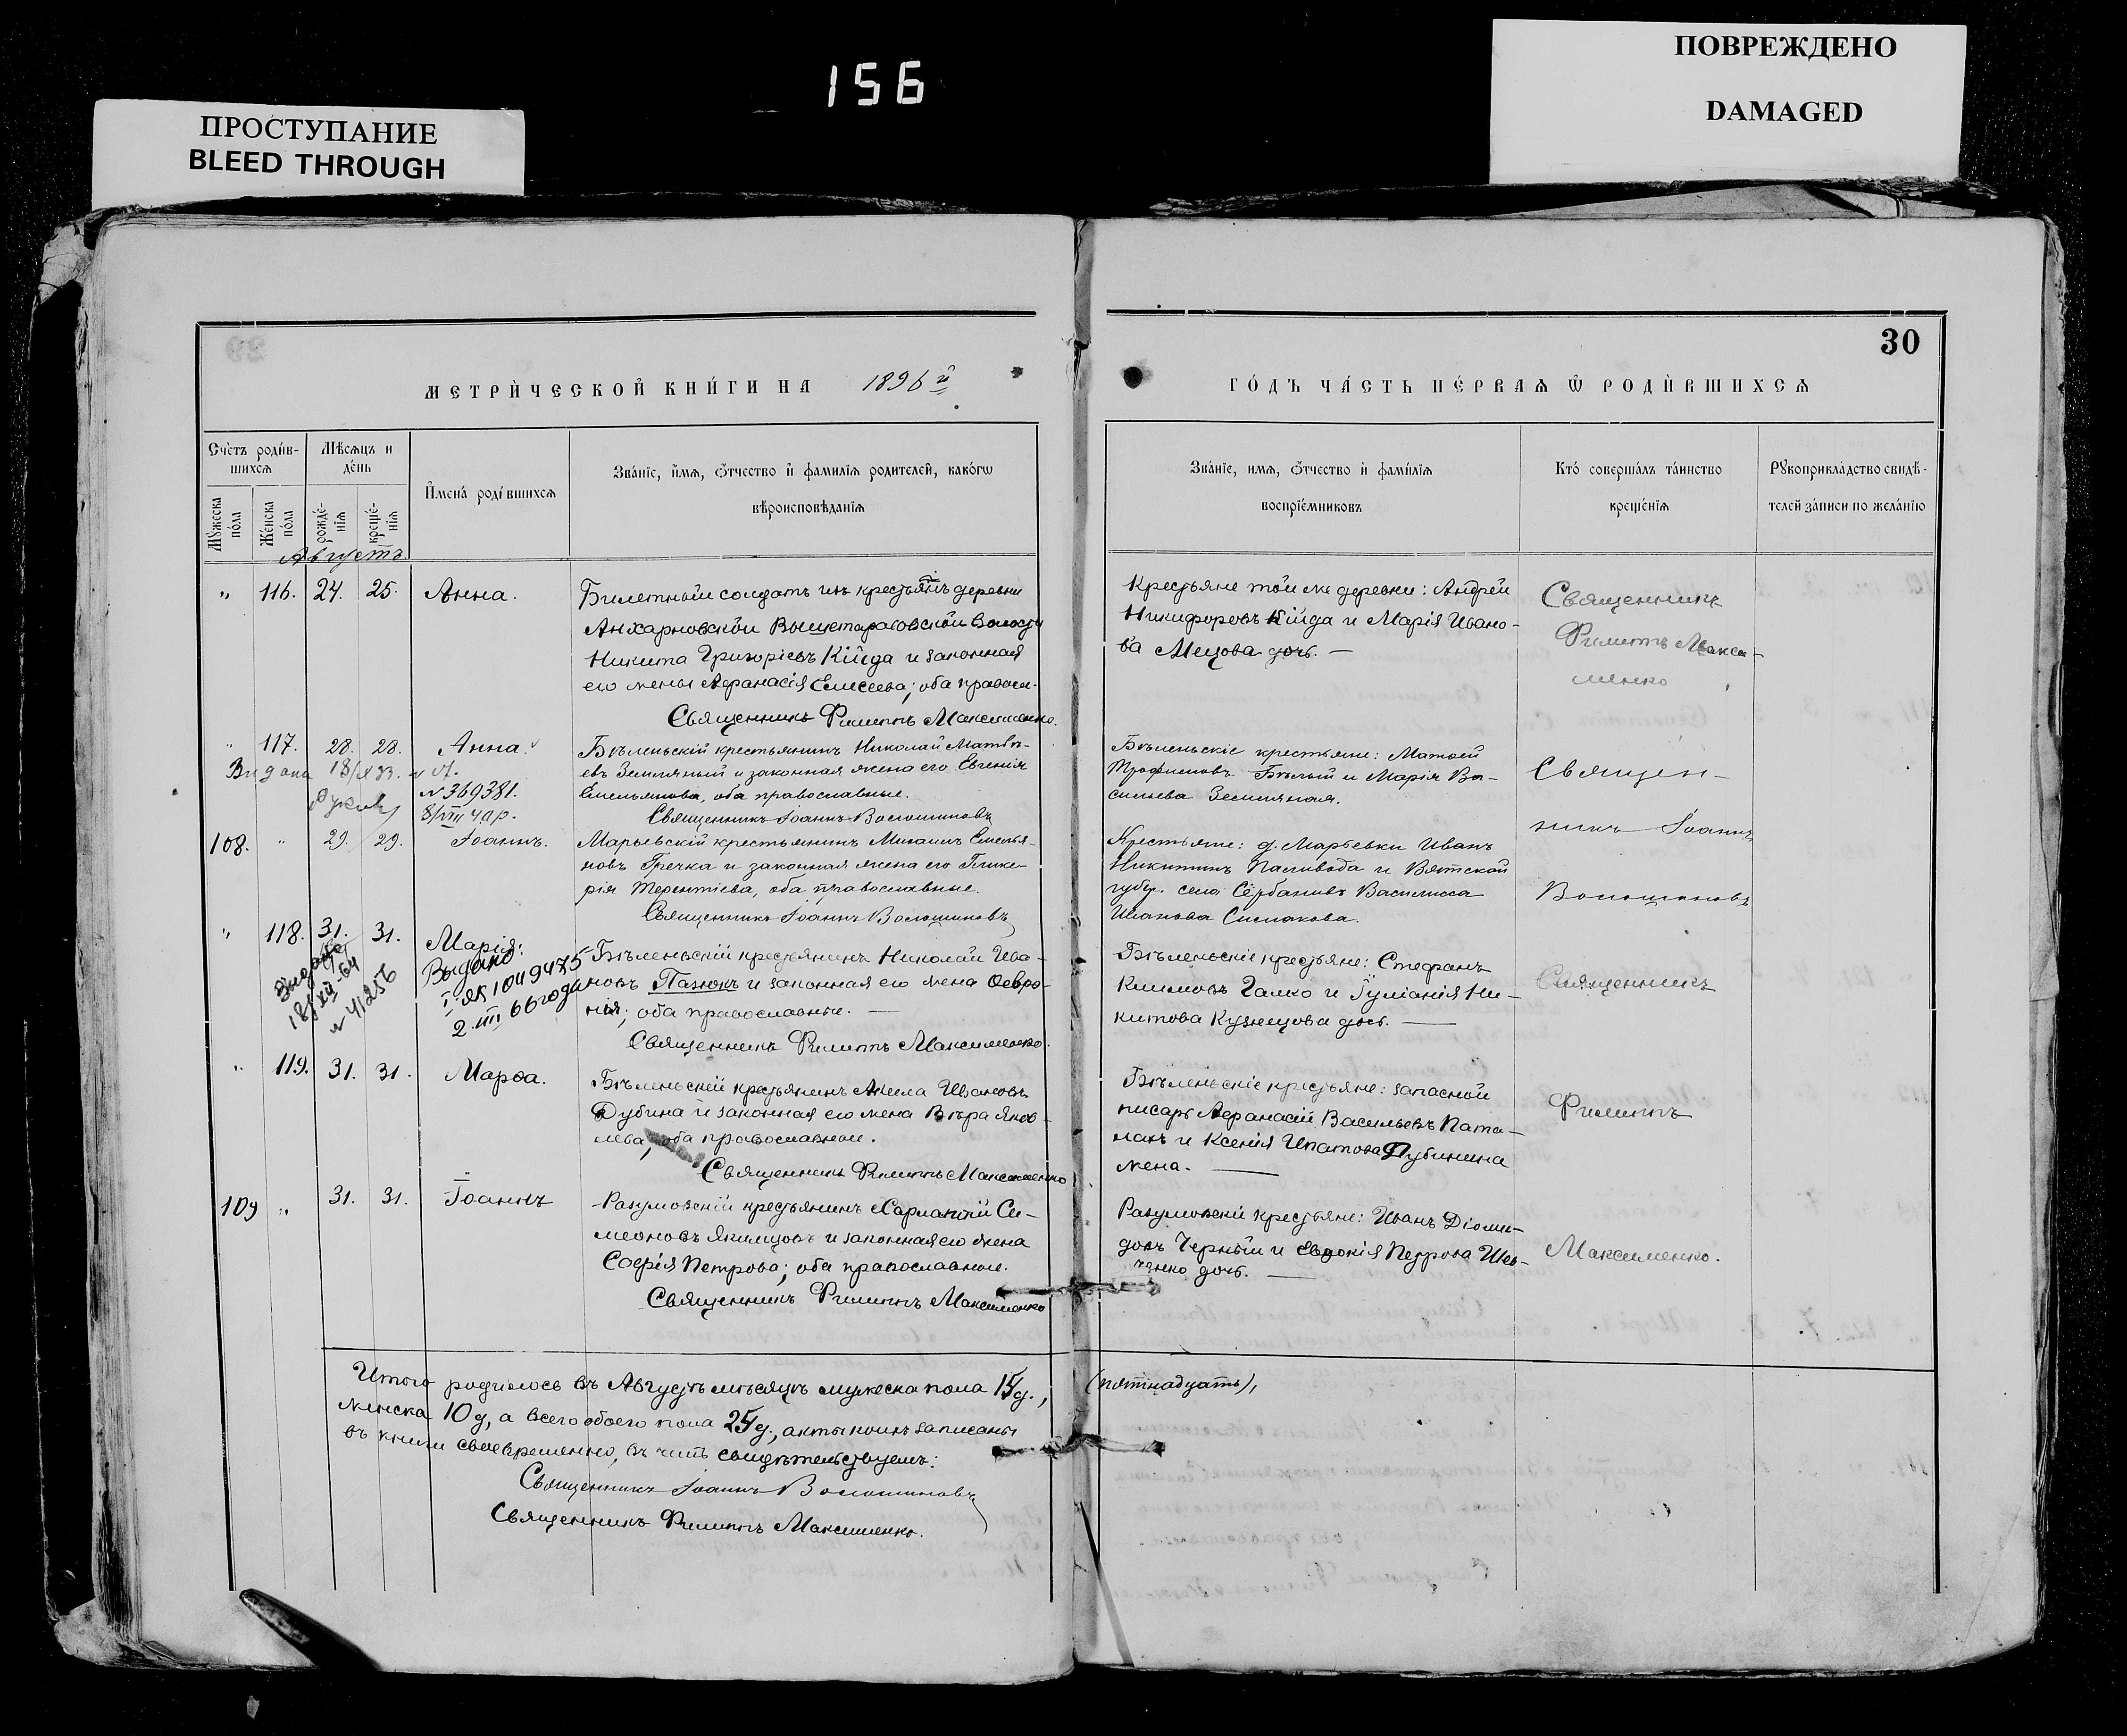 156
ПРОСТУПАНИЕ
BLEED THROUGH
ПОВРЕЖДЕНО
DAMAGED
30
МЕТРИЧЕСКОЙ КНИГИ НА 1896 й
ГОДЪ ЧАСТЬ ПЕРВАЯ Ѿ РОДИВШИХСЯ
Счетъ родив-
шихся
Мѣсяцъ и
день
Мужеска
пола
Женска
пола
рожде-
нія
креще-
нія
Имена родившихся
Званіе, имя, отчество и фамилія родителей, какогѡ
вѣроисповѣданія
Званіе, имя, отчество и фамилія
воспріемниковъ
Кто совершалъ таинство
крещенія
Рукоприкладство свидѣ-
телей записи по желанію
Августъ
" 116. 24. 25. Анна.
Билетный солдатъ изъ крестьянъ деревни
Анхарновской Вышетарасовской волости
Никита Григоріевъ Кійда и законная
его жена Афанасія Елисеева; оба правосл.
Священникъ Филиппъ Максименко.
Крестьяне той же деревни: Андрей
Никифоровъ Кійда и Марія Ивано-
ва Мецова дочь. —
Священникъ
Филиппъ Макси-
менко
" 117. 28. 28. Анна.
Бѣленьскій крестьянинъ Николай Матвѣ-
евъ Земляный и законная жена его Евгенія
Емельянова, оба православные.
Священникъ Іоаннъ Волошиновъ
Видана
№ 369381.
8/VIII
Бѣленьскіе крестьяне: Матѳей
Трофимовъ Бѣлый и Марія Ва-
сильева Земляная.
Священ-
никъ Іоаннъ
Волошиновъ
108. " 29. 29. Іоаннъ.
Марьевскій крестьянинъ Михаилъ Емелья-
новъ Гречка и законная жена его Глике-
рія Терентіева, оба православные.
Священникъ Іоаннъ Волошиновъ
Крестьяне: д. Марьевки Иванъ
Никитинъ Паливода и Вятской
губер. села Василисса
Иванова Симакова.
" 118. 31. 31. Марія.
Видано
18/XII-64
№ 41256
Выдано:
I ЯК 1049475
2.III 66 года
Бѣленьскій крестьянинъ Николай Ива-
новъ Пазюкъ и законная его жена Февро-
нія; оба православные. —
Священникъ Филиппъ Максименко.
Бѣленьскіе крестьяне: Стефанъ
Климовъ Галко и Іуліанія Ни-
китова Кузнецова дочь. —
Священникъ
" 119. 31. 31. Марѳа.
Бѣленьскій крестьянинъ Акила Ивановъ
Дубина и законная его жена Вѣра Яков-
лева, оба православные.
Священникъ Филиппъ Максименко
Бѣленьскіе крестьяне: запасной
писарь Афанасій Васильевъ Пата-
лахъ и Ксенія Ипатова Дубинина
жена. —
Филиппъ
109 " 31. 31. Іоаннъ
Разумовскій крестьянинъ Харлампій Си-
меоновъ Якимцовъ и законная его жена
Софія Петрова; оба православные.
Священникъ Филиппъ Максименко
Разумовскіе крестьяне: Иванъ Діоми-
довъ Черный и Евдокія Петрова Шев-
ченко дочь. —
Максименко.
Итого родилось въ Августѣ мѣсяцѣ мужеска пола 15 д., (пятнадцать),
женска 10 д, а всего обоего пола 25 д., акты коихъ записаны
въ книги своевременно, въ чемъ свидѣтельствуемъ:
Священникъ Іоаннъ Волошиновъ
Священникъ Филиппъ Максименко.